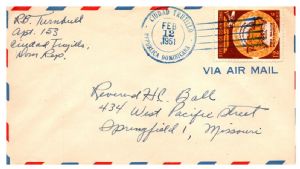 R.G. Turnbull
Apt. 153
Ciudad Trujillo,
Dom Rep.
CIUDAD TRUJILLO
FEB
12
1951
REPUBLICA DOMINICANA
VIA AIR MAIL
Reverend H.C. Ball
434 West Pacific Street
Springfield 1, Missouri